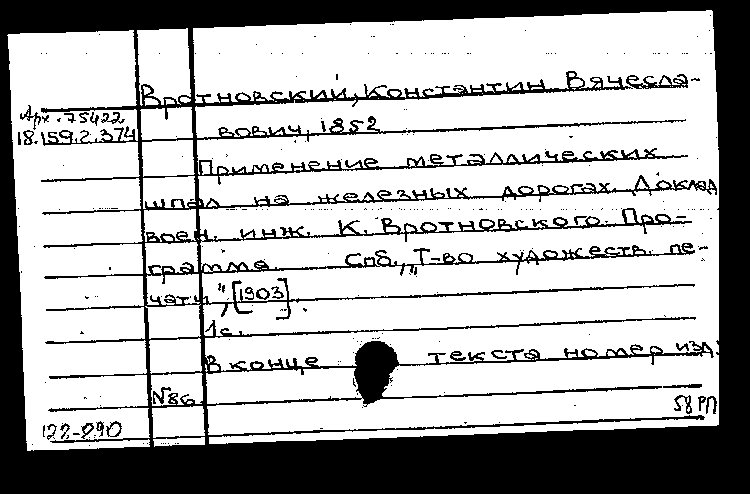 Вротновский, Константин Вячесла-
Арх. 75422
18.159.2.374
вович, 1852
Применение металлических
шпал на железных дорогах. Доклад
воен. инж. К. Вротновского. Про-
грамма. Спб., "Т-во художеств. пе-
чати", [1903].
1с.
В конце текста номер изд:
№86.
58 РП
122-890